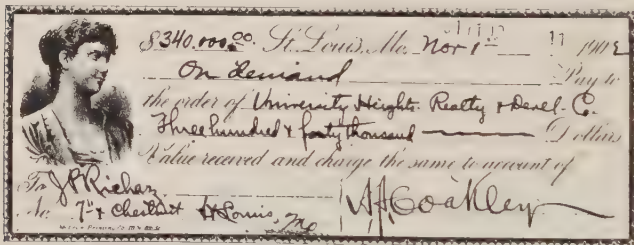 $340.000.00 St. Louis, Mo. Nov 1st 1902
On demand Pay to
the order of University Heights Realty & Devel. Co.
Three hundred & forty thousand Dollars
Value received and charge the same to account of
To J P Richar
No. 7th & Chestnut St Louis, Mo H Coakley